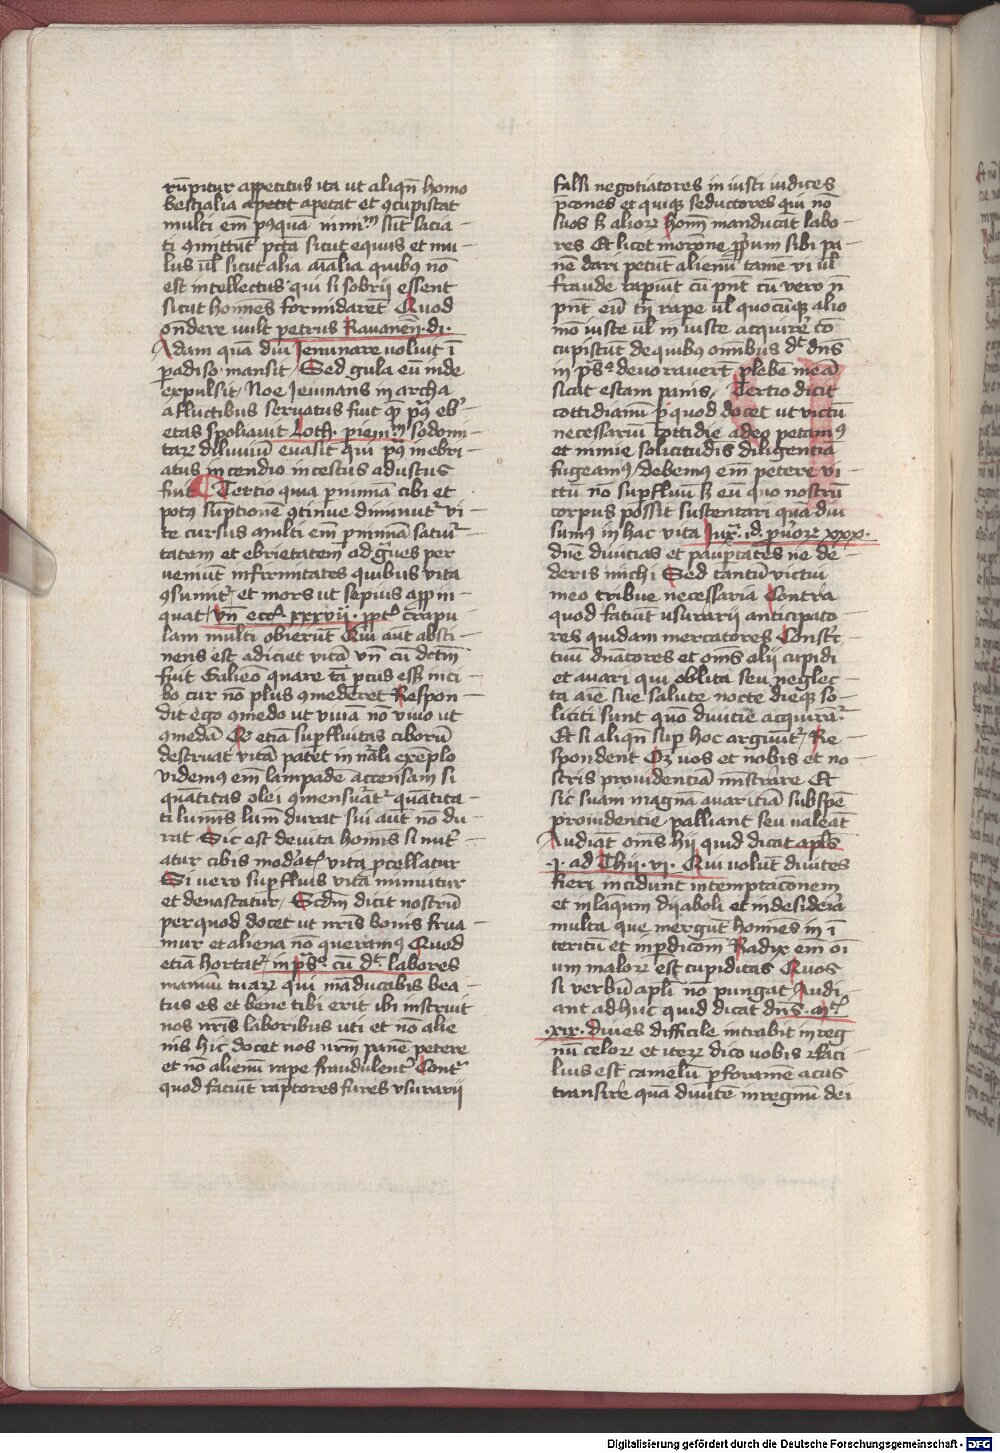 rūpitur appetitus ita ut aliqñ homo
bestialia apetit apetat et ꝯcupiscat
multi em̄ pꝰquā nimiᵐ sūt sacia-
ti ꝯmittūt pctā sicut equus et mu-
lus ul̄ sicut alia aīalia quibꝰ nō
est intellectus qui si sobrii essent
sicut homines formidarēt Quod
ondere uult petrus Rauanen̄. di.
Adam quā diu Ieiunare uoluit ī
padiso mansit Sed gula eū inde
expulsit Noe Ieiunans in archa
a fluctibus seruatus fuit qȝ pꝰ ebˀ-
etas spoliauit Loth. p ieiuniū sodomi-
tarȝ diluuiū euasit qui pꝰ inebri-
atus incendio incestus adustus
fuit Tertio quia p nimiā cibi et
potꝰ sūptionē ꝯtinue diminuitˀ vi-
te cursus multi em̄ p nimiā satui-
tatem et ebrietatem ad gˀues per
ueniūt infirmitates quibus vita
ꝯsumitˀ et mors ut sepius appin-
quat vn̄ eccˡ xxxvii. ppt̄ crapu
lam multi obierūt Qui aut absti-
nens est adiciet vitā vn̄ cū dctm̄
fuit Galieno quare tā pcus ess in ci-
bo cur nō plus ꝯmederet Respon-
dit ego ꝯmedo ut viuā nō viuo ut
ꝯmedā Qȝ etiā supfluitas ciborū
destruat vitā patet in nˀali exēplo
videmꝰ em̄ lampade accensam si
quātitas olei ꝯmensuratˀ quātita-
ti luminis lum̄ durat sui aut nō du-
rat Sic est de vita hominis si nutˀ
atur cibis modˀatˀ vita pcellatur
Si vero supfluis vita minuitur
et deuastatur, Scdm̄ dicit nostrū
per quod docet ut nr̄is bonis frua-
mur et aliena nō queramꝰ Quod
etiā hortatˀ in psˀ. cū dt. labores
manuū tuarȝ qui māducabis bea-
tus es et bene tibi erit ibi instruit
nos nr̄is laboribus uti et nō alie
nis hic docet nos nr̄m panē petere
et nō alienū rape fraudulentˀ Contˀ
quod faciūt raptores fures vsurarii
falsi negotiatores iniusti iudices
pcones et quiqȝ seductores qui nō
suos sȝ aliorȝ hom̄ manducāt labo-
res Et licet in orōne pp̄um sibi pa-
nē dari petūt alienū tamē vi ul̄
fraude rapiūt cū pn̄t cū vero n̄
pn̄t eū tn̄ rape ul̄ quocūqȝ alio
mō iuste ul̄ iniuste acquirē cō
cupiscūt de quibus om̄ibus dt dn̄s
in psˀ deuorauerūt plebē meā
sicut escam panis, Tertio dicit
cottidianū p quod docet ut victū
necessariū cottidie a deo petamꝰ
et nimie solicitudīs diligentiā
fugeamꝰ debemꝰ em̄ petere vi-
ctū nō supfluū sȝ eū quo nostrū
corpus possit sustentari quā diu
sumꝰ in hac vita Iuxˀ. id. puˀorȝ xxx.
dn̄e diuitias et paupertates ne de-
deris michi Sed tantū victui
meo tribue necessaria Contra
quod faciūt usurarii anticipato-
res quidam mercatores Constˀc-
tiui dn̄atores et om̄s alii cupidi
et auari qui oblita seu neglec-
ta aīe sue salute nocte dieqȝ so-
liciti sunt quō diuitie acquirātˀ
Et si aliqn̄ sup hoc arguūtˀ, Re-
spondent Oȝ vos et nobis et no-
stris prouidentiā mīstrare Et
sic suam magnā auaritiā sub spē
prouidentie palliant seu ualeāt
Audiāt om̄s hii quid dicat apls
.j. ad Thi. vi. Qui volūt diuites
fieri incidunt in temptacōnem
et in laqum dyaboli et in desideria
multa que mergūt homines in ī
teritū et in pdicōm Radix em̄ oī
um malorȝ est cupiditas Quos
si verbū apl̄i nō pungat Audi-
ant adhuc quid dicat dn̄s. mˡ
.xix. diues difficile intrabit in reg
nū celorȝ et iterȝ dico uobis faci
lius est camelū p foramē acus
transire quā diuitē in regnū dei
Digitalisierung gefördert durch die Deutsche Forschungsgemeinschaft - DFG